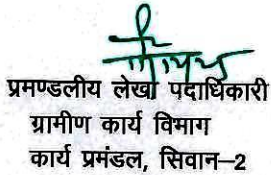 प्रमण्डलीय लेखा पदाधिकारी
ग्रामीण कार्य विभाग
कार्य प्रमंडल, सिवान–2